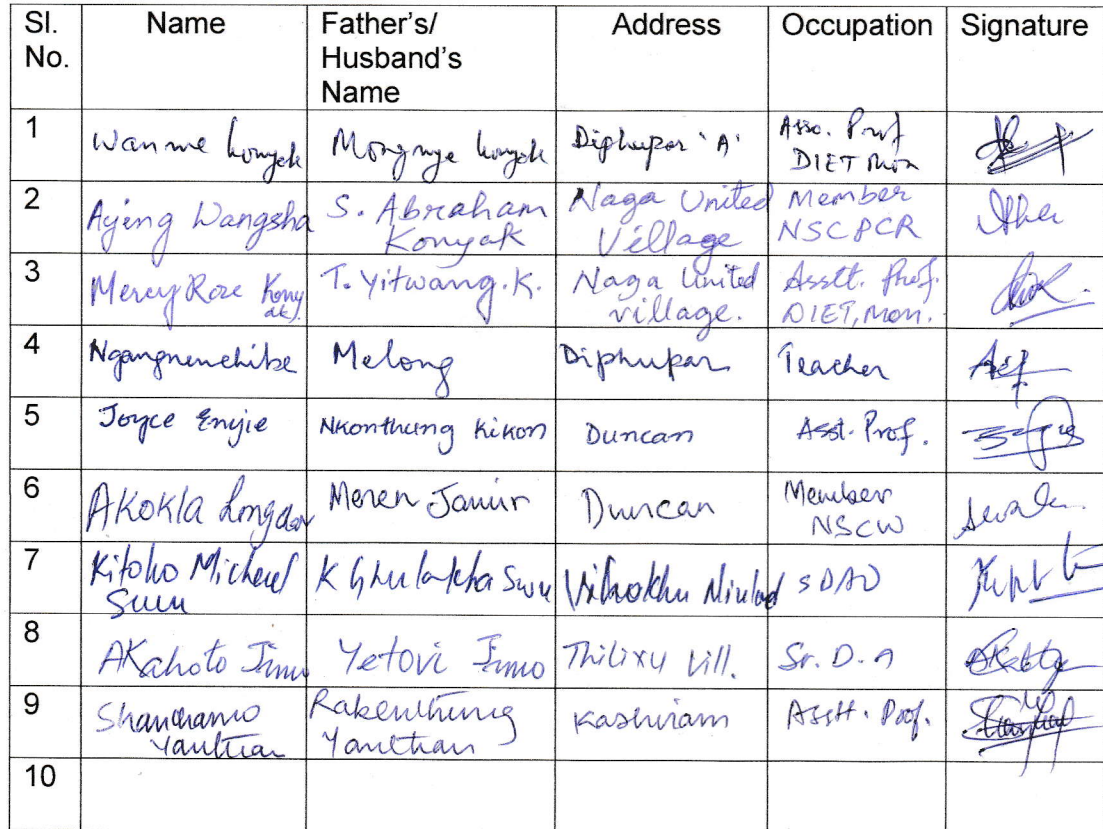 Sl. No. Name Father's/ Husband's Name Address Occupation Signature
1 Wanme Konyak Mongnye Konyak Diphupar 'A' Asso. Prof DIET Mon
2 Ajeng Wangsha S. Abraham Konyak Naga United Village Member NSCPCR
3 Mercy Rose Konyak). T. Yitwang. K. Naga United village. Asstt. Prof. DIET, Mon.
4 Melong Diphupar Teacher
5 Joyce Enjie Nkonthung Kikon Duncan Asst. Prof.
6 AKokla Longchar Meren Jamir Duncan Member NSCW
7 Kitoho Micheal Swu K Ghulakha Swu Vihokhu Niuland SDAO
8 AKahoto Jimo Yetovi Jimo Thilixu Vill. Sr. D. A
9 Shanchamo Yanthan Rakenthung Yanthan Kashiram Asstt. Prof.
10